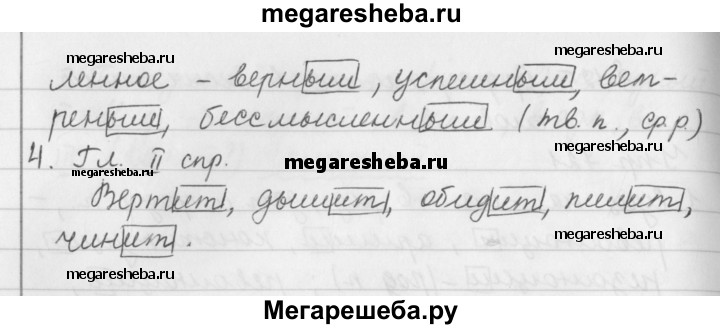 megaresheba.ru
megaresheba.ru megaresheba.ru
ленное - верным, успешным, вет-
реным, бессмысленным (тв. п., ср.р)
4. Гл. II спр.
megaresheba.ru megaresheba.ru megaresheba.ru
Вертит, дышит, обидит, пилит,
чинит.
megaresheba.ru megaresheba.ru
Мегарешеба.ру